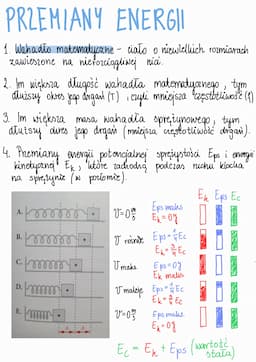 PRZEMIANY ENERGII
1. Wahadło matematyczne - ciało o niewielkich rozmiarach
zawieszone na nierozciągliwej nici.
2. Im większa długość wahadła matematycznego, tym
dłuższy okres jego drgań (T), czyli mniejsza częstotliwość (f)
3. Im większa masa wahadła sprężynowego, tym
dłuższy okres jego drgań (mniejsza częstotliwość drgań).
4. Przemiany energii potencjalnej sprężystości Eps i energii
kinetycznej Ek, które zachodzą podczas ruchu klocka
na sprężynie (w poziomie).
Ek Eps Ec
A. v=0 m/s Eps maks
Ek=0J
B. v rośnie
C. v maks Eps=0J
Ek maks
D. v maleje
E. v=0 m/s Eps maks
Ek=0J
Ec = Ek + Eps (wartość
stała)